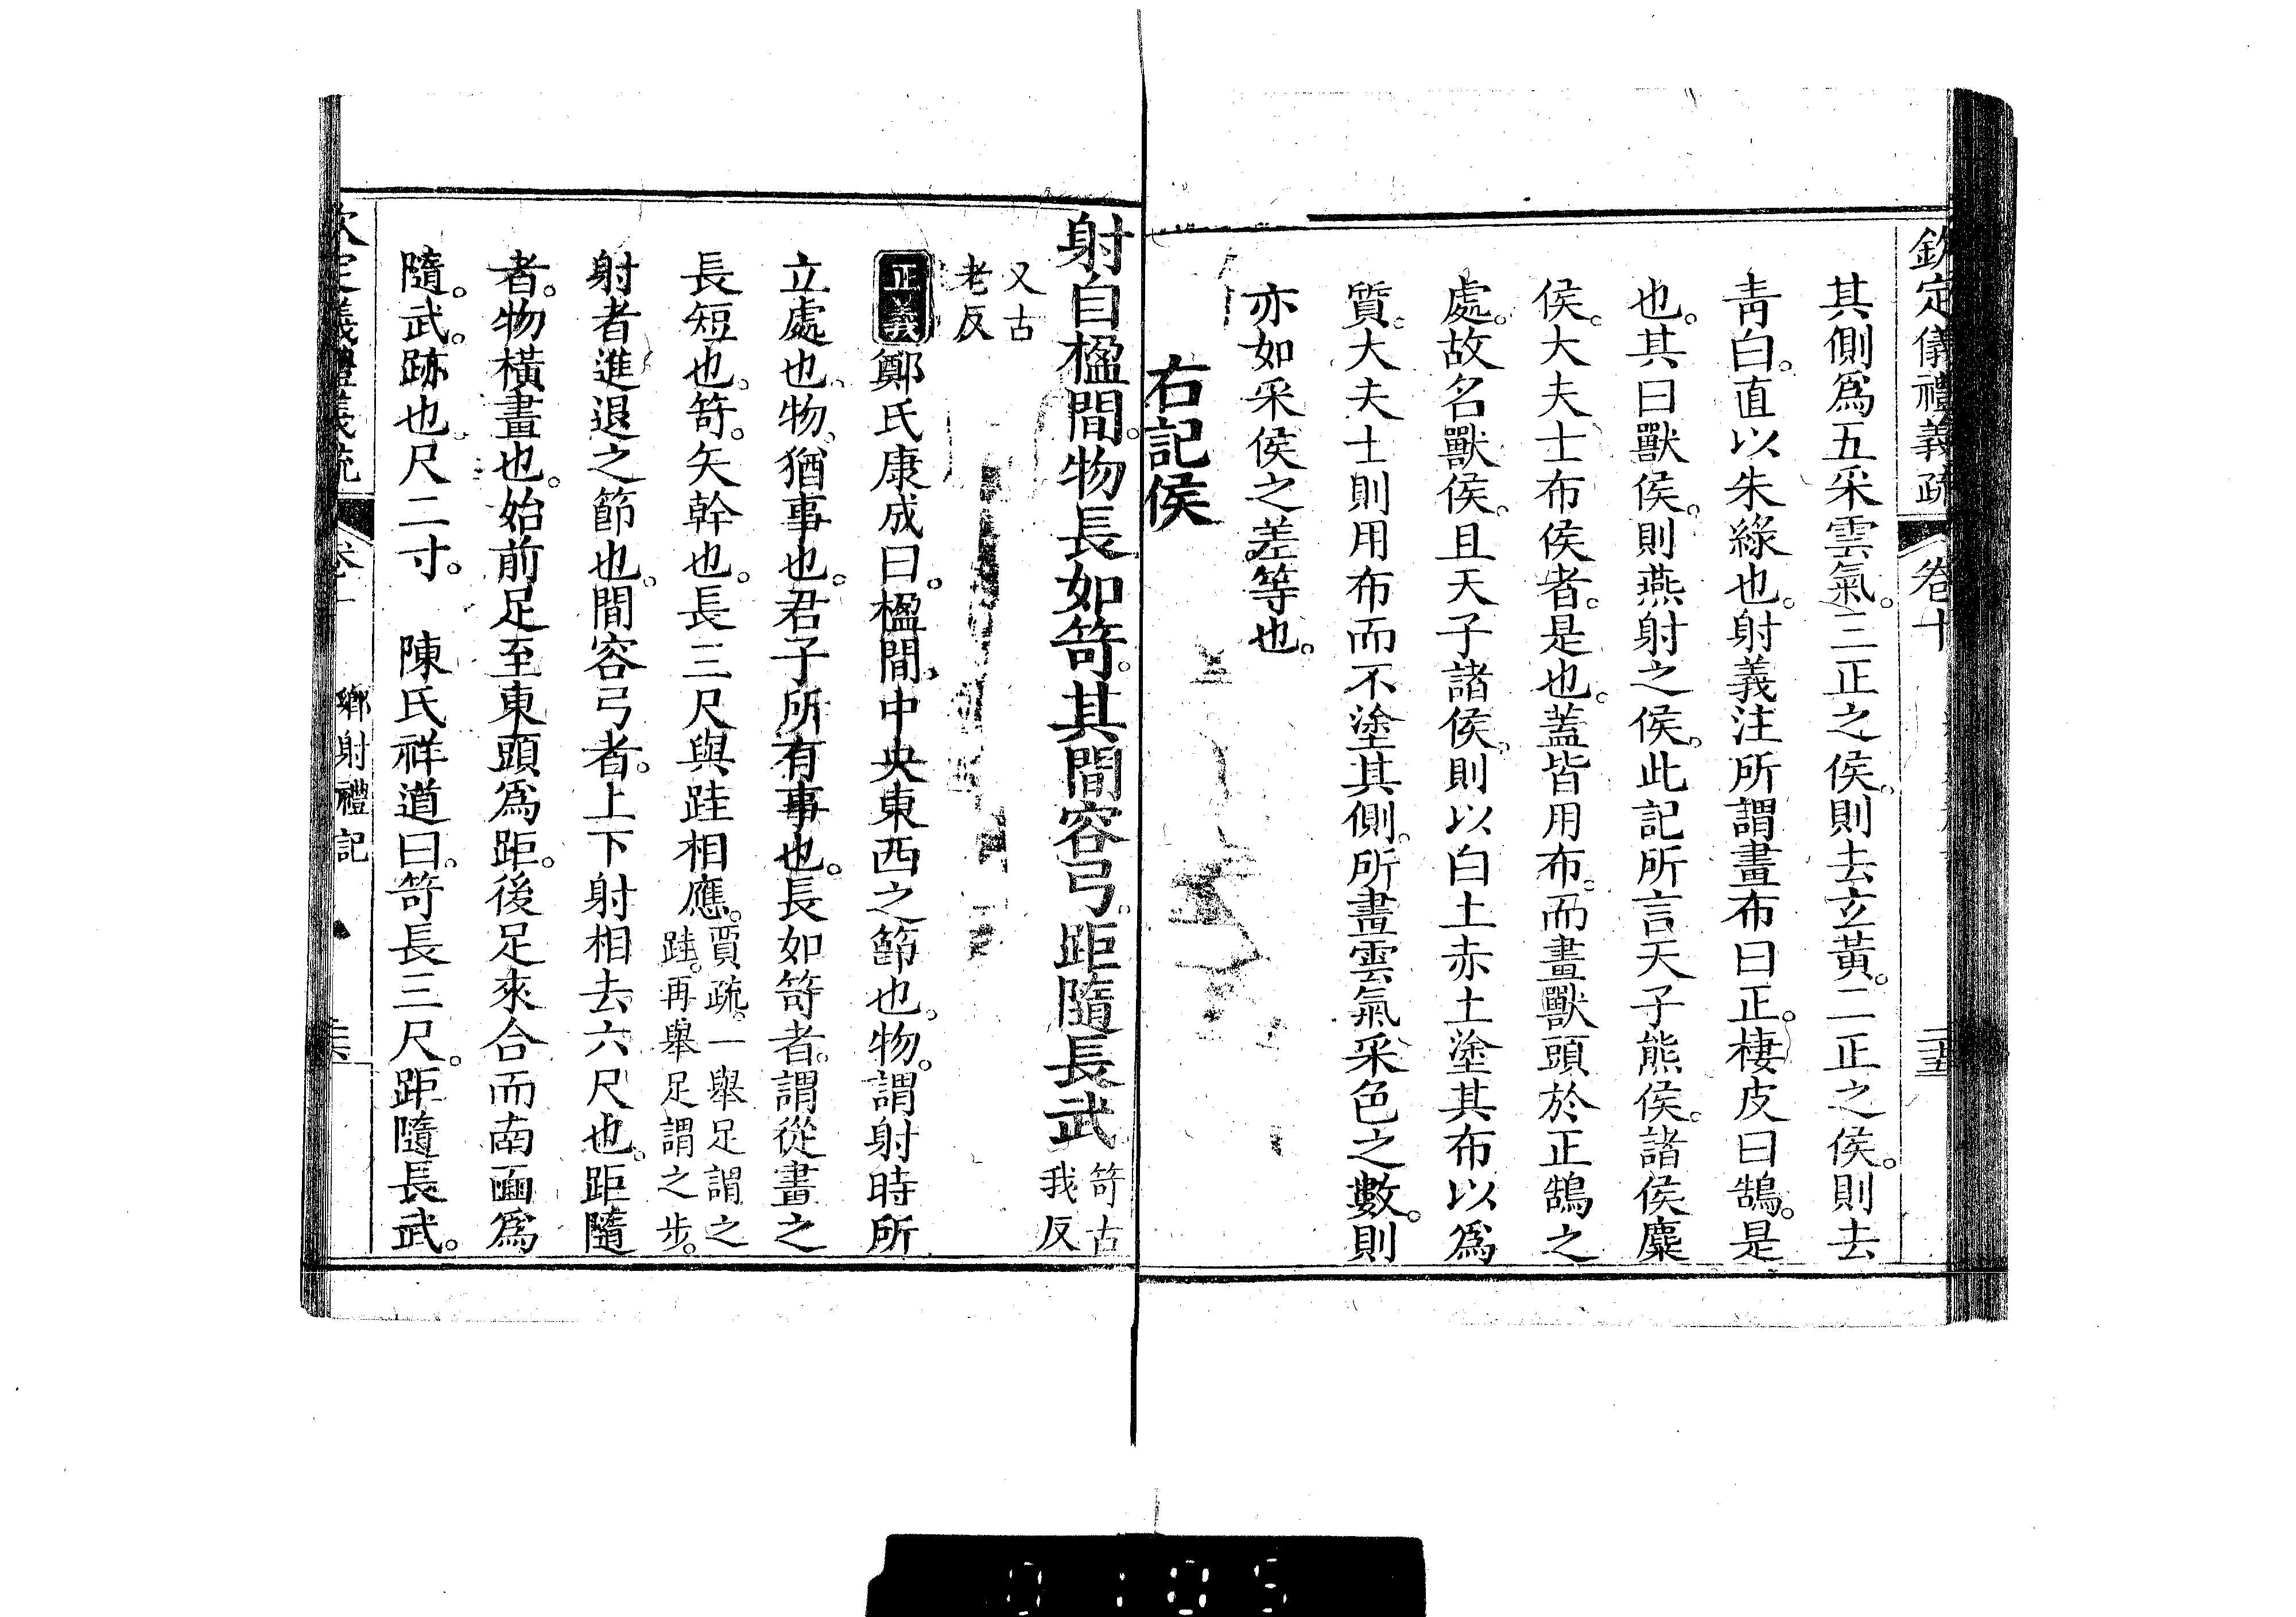 欽定儀禮義疏　卷十
其側爲五采雲氣。三正之侯。則去玄黃。二正之侯。則去
靑白。直以朱綠也。射義注所謂畫布曰正。棲皮曰鵠。是
也。其曰獸侯。則燕射之侯。此記所言天子熊侯。諸侯麋
侯。大夫士布侯者。是也。蓋皆用布。而畫獸頭於正鵠之
處。故名獸侯。且天子諸侯。則以白土赤土塗其布以爲
質。大夫士則用布而不塗其側。所畫雲氣采色之數。則
亦如采侯之差等也。
右記侯
射自楹間。物長如笴。其間容弓。距隨長武
笴古
我反
又古
老反
正義　鄭氏康成曰。楹間。中央東西之節也。物。謂射時所
立處也。物。猶事也。君子所有事也。長如笴者。謂從畫之
長短也。笴。矢幹也。長三尺與跬相應。
賈疏。一舉足謂之
跬。再舉足謂之步。
射者進退之節也。間容弓者。上下射相去六尺也。距隨
者。物橫畫也。始前足至東頭爲距。後足來合而南面爲
隨。武。跡也。尺二寸。　陳氏祥道曰。笴長三尺。距隨長武。
鄉射禮記
0105